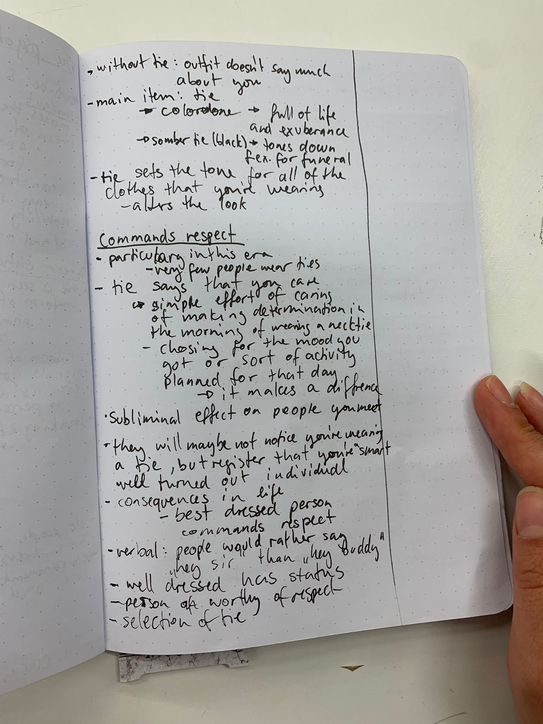 - without tie: outfit doesn't say much
about you
- main item: tie
→ colordone → full of life
and exuberance
→ somber tie (black) → tones down
f.ex. for funeral
- tie sets the tone for all of the
clothes that you're wearing
- alters the look
Commands respect
- particulary in this era
- very few people wear ties
- tie says that you care
→ simple effort of caring
of making determination in
the morning of wearing a necktie
- chosing for the mood you
got or sort of activity
planned for that day
→ it makes a diffrence
· subliminal effect on people you meet
· they will maybe not notice you're wearing
a tie, but register that you're "smart
well turned out individual
- consequences in life
- best dressed person
commands respect
- verbal: people would rather say
"hey sir" than "hey buddy"
- well dressed has status
- person worthy of respect
- selection of tie